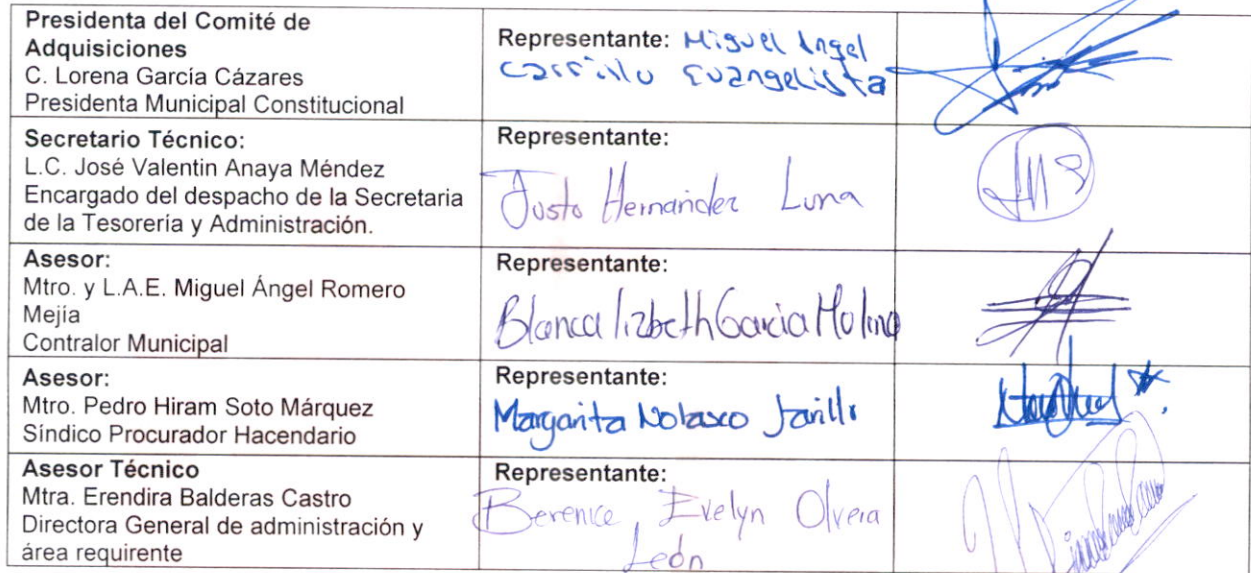 Presidenta del Comité de
Adquisiciones
C. Lorena García Cázares
Presidenta Municipal Constitucional
Representante: Miguel Angel
Carrillo Evangelista
Secretario Técnico:
L.C. José Valentin Anaya Méndez
Encargado del despacho de la Secretaria
de la Tesorería y Administración.
Representante:
Justo Hernandez Luna
Asesor:
Mtro. y L.A.E. Miguel Ángel Romero
Mejía
Contralor Municipal
Representante:
Blanca lizbeth Garcia Molina
Asesor:
Mtro. Pedro Hiram Soto Márquez
Síndico Procurador Hacendario
Representante:
Margarita Nolasco Jarillo
Asesor Técnico
Mtra. Erendira Balderas Castro
Directora General de administración y
área requirente
Representante:
Berenice Evelyn Olvera
León